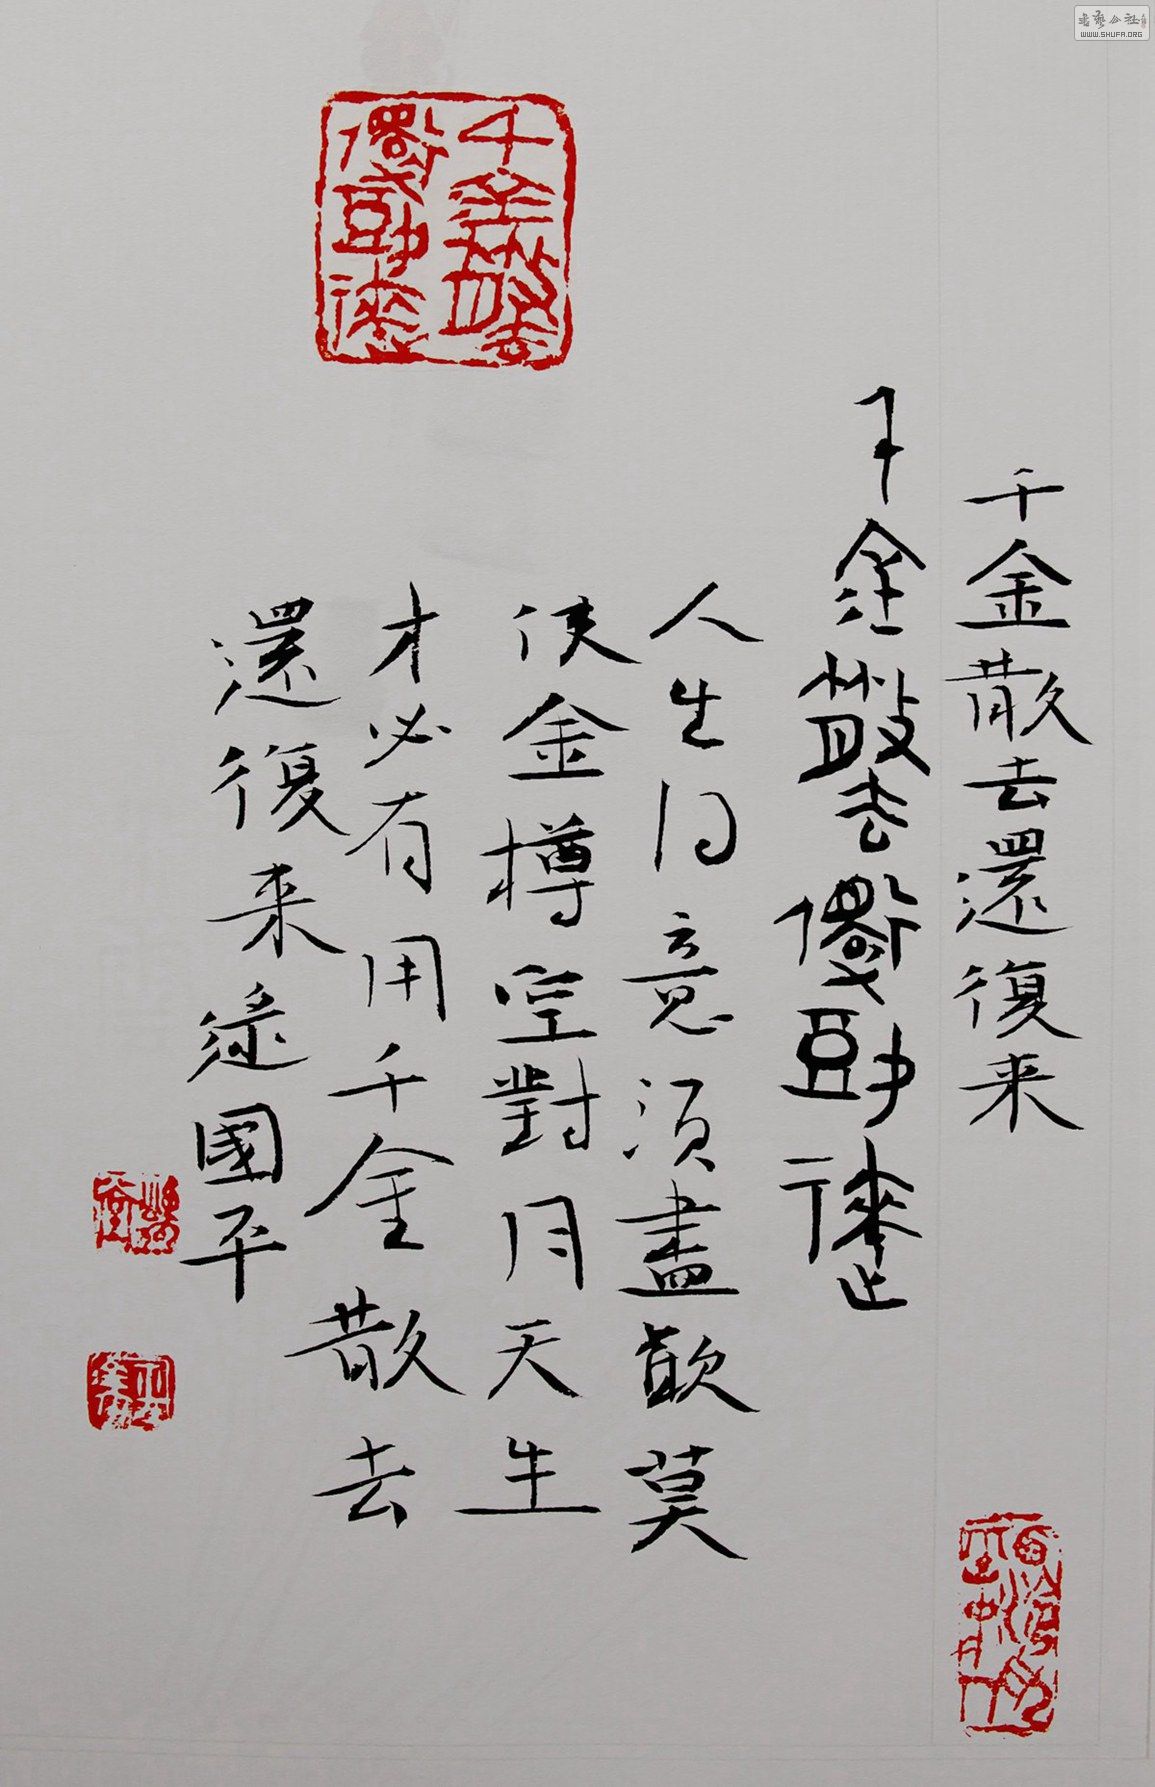 書藝公社
WWW.SHUFA.ORG
千金散去
還復來
千金散去還復来
千金散去還復來
人生得意須盡歡莫
使金樽空對月天生
才必有用千金散去
還復来逯國平